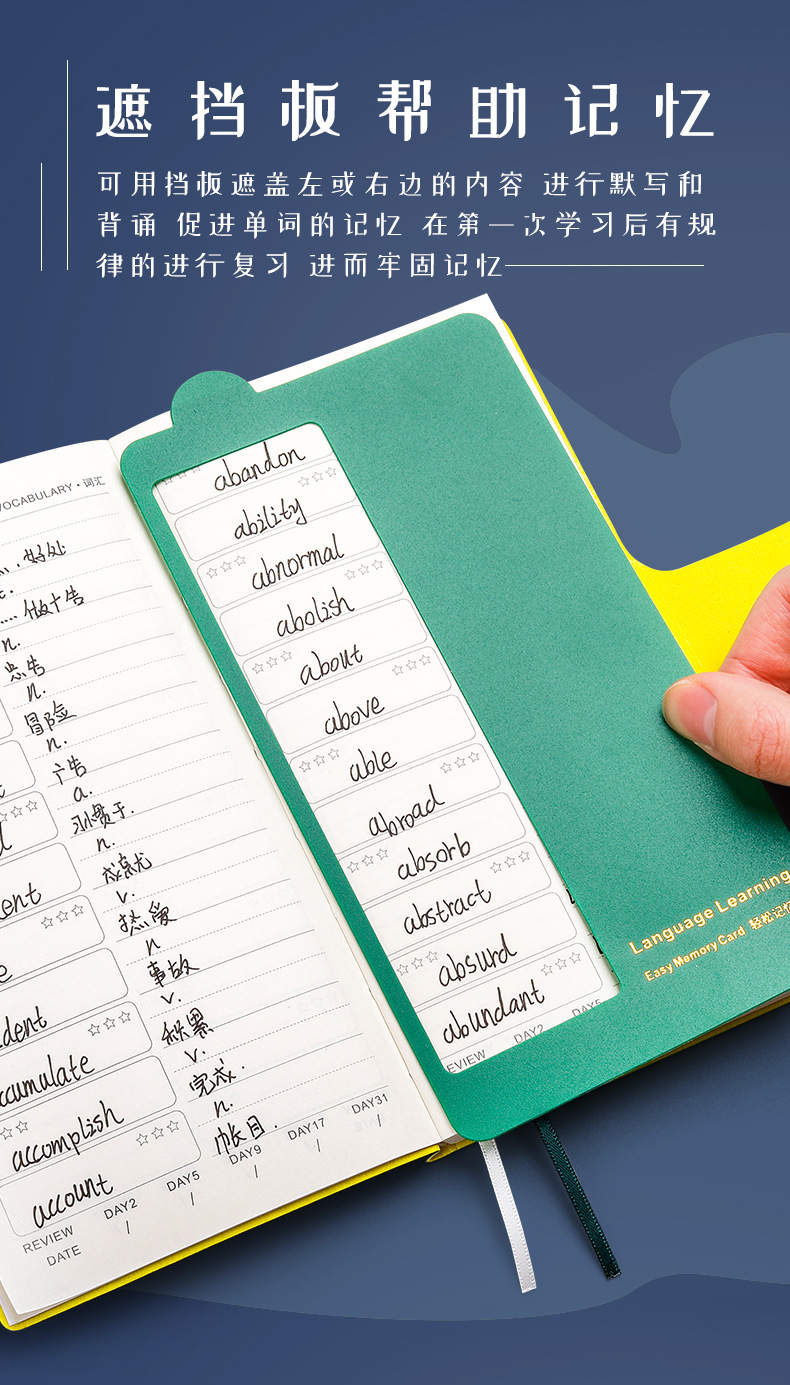 遮挡板帮助记忆
可用挡板遮盖左或右边的内容 进行默写和
背诵 促进单词的记忆 在第一次学习后有规
律的进行复习 进而牢固记忆
VOCABULARY · 词汇
好处
做广告
n.
忠告
n.
冒险
n.
广告
a.
习惯于.
n.
成就
v.
热爱
n
事故
v.
积累
v.
完成.
n.
帐目.
accomplish
account
REVIEW DAY2 DAY5 DAY9 DAY17 DAY31
DATE / / / / /
abandon
ability
abnormal
abolish
about
above
able
abroad
absorb
abstract
absurd
abundant
DAY2 DAY5
Language Learning
Easy Memory Card 轻松记忆